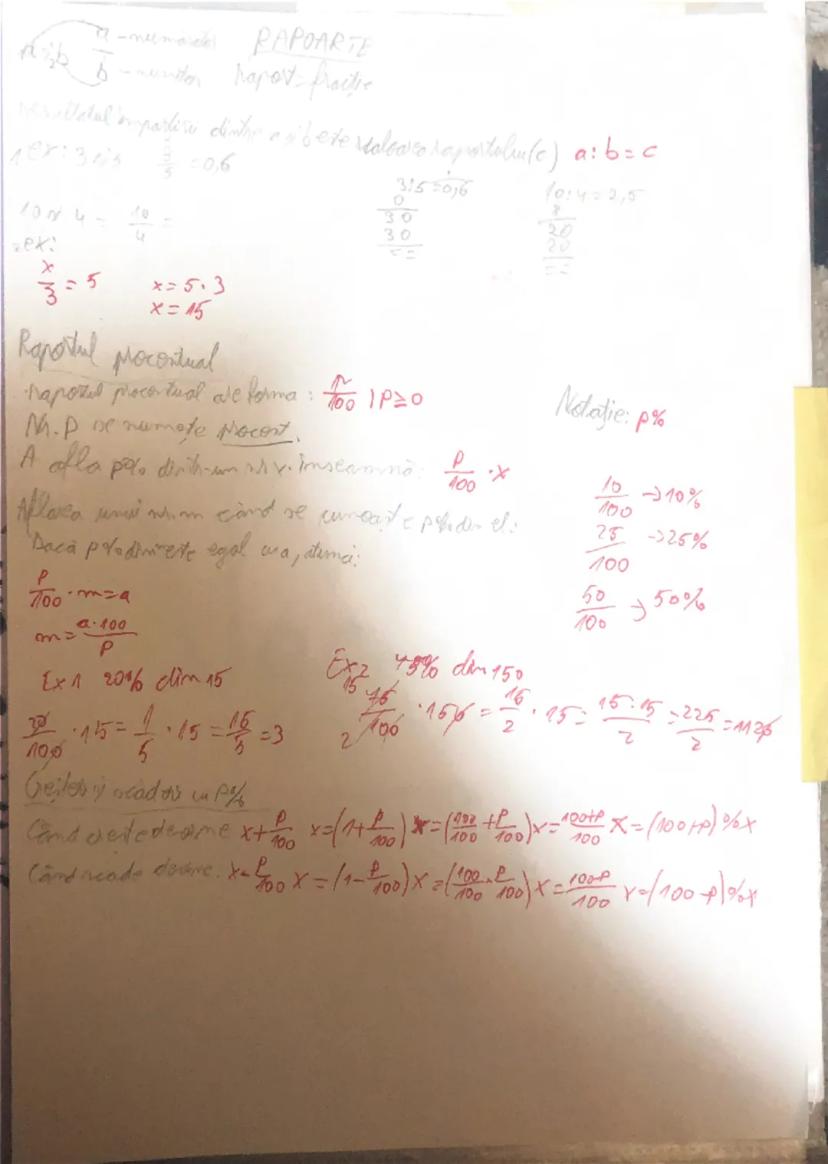 a - numărător RAPOARTE
a:b
b - numitor raport = fracție
rezultatul împărțirii dintre a și b este valoarea raportului (c) a:b=c
1 ex: 3 și 5 3/5 = 0,6
3:5=0,6 10:4=2,5
0 8
30 20
30 20
== ==
10 și 4 = 10/4 =
2 ex:
x/3 = 5 x=5·3
x=15
Raportul procentual
raportul procentual are forma: p/100, p≥0 Notație: p%
Nr. p se numește procent.
A afla p% dintr-un nr x înseamnă: p/100 · x
10/100 → 10%
Aflarea unui nr m când se cunoaște p% din el:
25/100 → 25%
Dacă p% din m este egal cu a, atunci:
50/100 → 50%
p/100 · m = a
m = a·100/p
Ex1 20% din 15 Ex2 75% din 150
20/100 · 15 = 1/5 · 15 = 15/5 = 3
75/100 · 150 = 15/2 · 15 = 15·15/2 = 225/2 =
Creșteri și scăderi cu p%
Când crește devine x + p/100 x = (1 + p/100) x = (100/100 + p/100) x = 100+p/100 x = (100+p)%x
Când scade devine x - p/100 x = (1 - p/100) x = (100/100 - p/100) x = 100-p/100 x = (100-p)%x